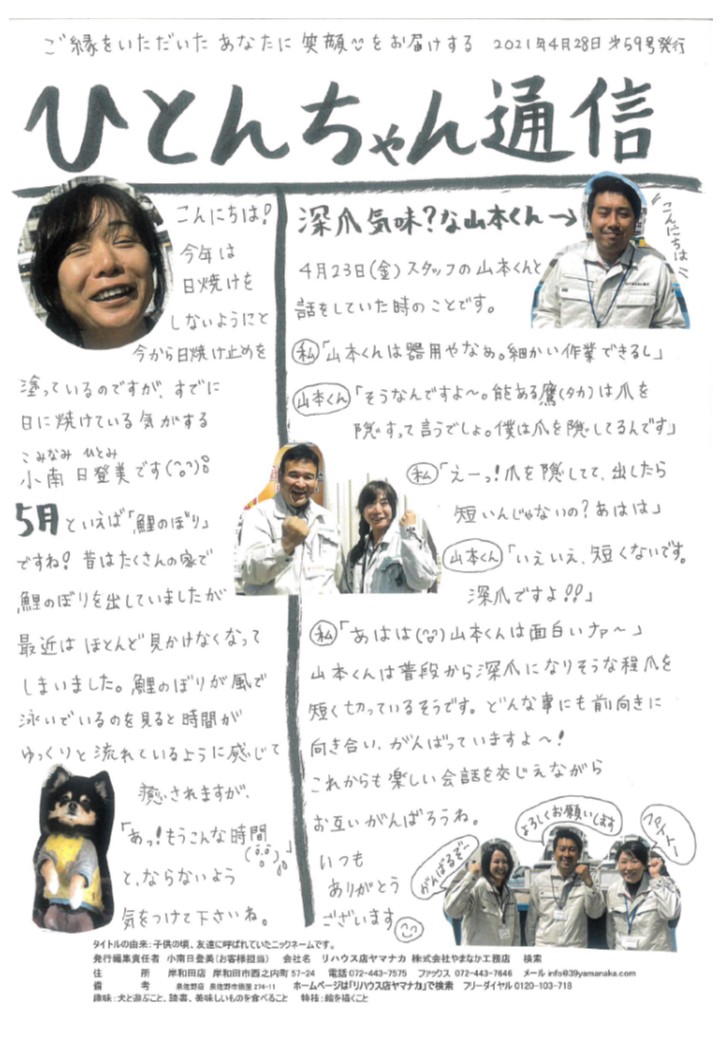 ご縁をいただいた あなたに 笑顔をお届けする 2021年4月28日 第59号発行
ひとんちゃん通信
こんにちは!
今年は
日焼けを
しないようにと
今から日焼け止めを
塗っているのですが、すでに
日に焼けている気がする
こみなみ ひとみ
小南 日登美です
5月といえば「鯉のぼり」
ですね! 昔はたくさんの家で
鯉のぼりを出していましたが
最近は ほとんど見かけなくなって
しまいました。鯉のぼりが風で
泳いでいるのを見ると時間が
ゆっくりと流れているように感じて
癒されますが、
「あっ!もうこんな時間」
と、ならないよう
気をつけて下さいね。
深爪気味?な山本くん→
こんにちは
4月23日(金)スタッフの山本くんと
話をしていた時のことです。
私「山本くんは器用やなぁ。細かい作業できるし」
山本くん「そうなんですよ〜。能ある鷹(タカ)は爪を
隠すって言うでしょ。僕は爪を隠してるんです」
私「えーっ!爪を隠してて、出したら
短いんじゃないの?あはは」
山本くん「いえいえ、短くないです。
深爪ですよ!!」
私「あはは 山本くんは面白いナァ〜」
山本くんは普段から深爪になりそうな程爪を
短く切っているそうです。どんな事にも前向きに
向き合い、がんばっていますよ〜!
これからも楽しい会話を交じえながら
お互いがんばろうね。
いつも
ありがとう
ございます
がんばるぞ〜
よろしくお願いします
タイトルの由来:子供の頃、友達に呼ばれていたニックネームです。
発行編集責任者 小南日登美(お客様担当) 会社名 リハウス店ヤマナカ 株式会社やまなか工務店 検索
住 所 岸和田店 岸和田市西之内町57-24 電話072-443-7575 ファックス 072-443-7646 メール info@39yamanaka.com
備 考 泉佐野店 泉佐野市俵屋274-11 ホームページは「リハウス店ヤマナカ」で検索 フリーダイヤル0120-103-718
趣味:犬と遊ぶこと、読書、美味しいものを食べること 特技:絵を描くこと